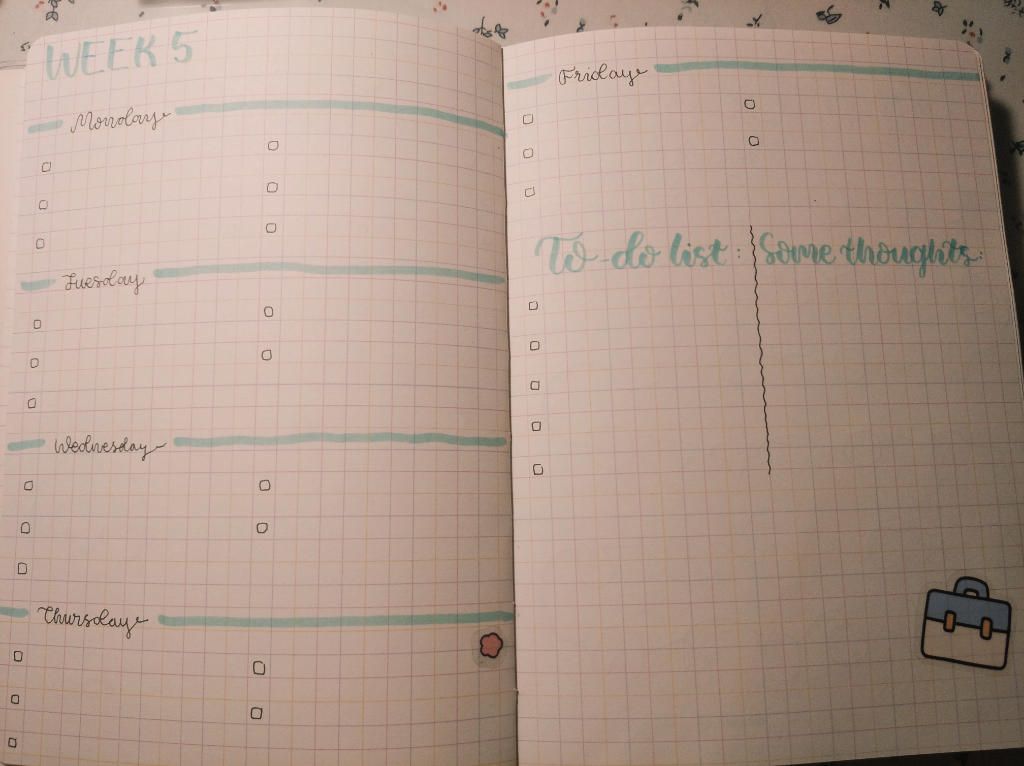 WEEK 5
Monday
Tuesday
Wednesday
Thursday
Friday
To do list :
Some thoughts :